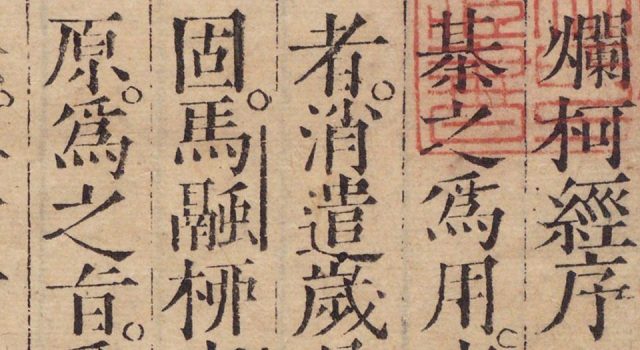 爛柯經序
棊之爲用
者。消遣歲
固。馬融柳
原。爲之旨。